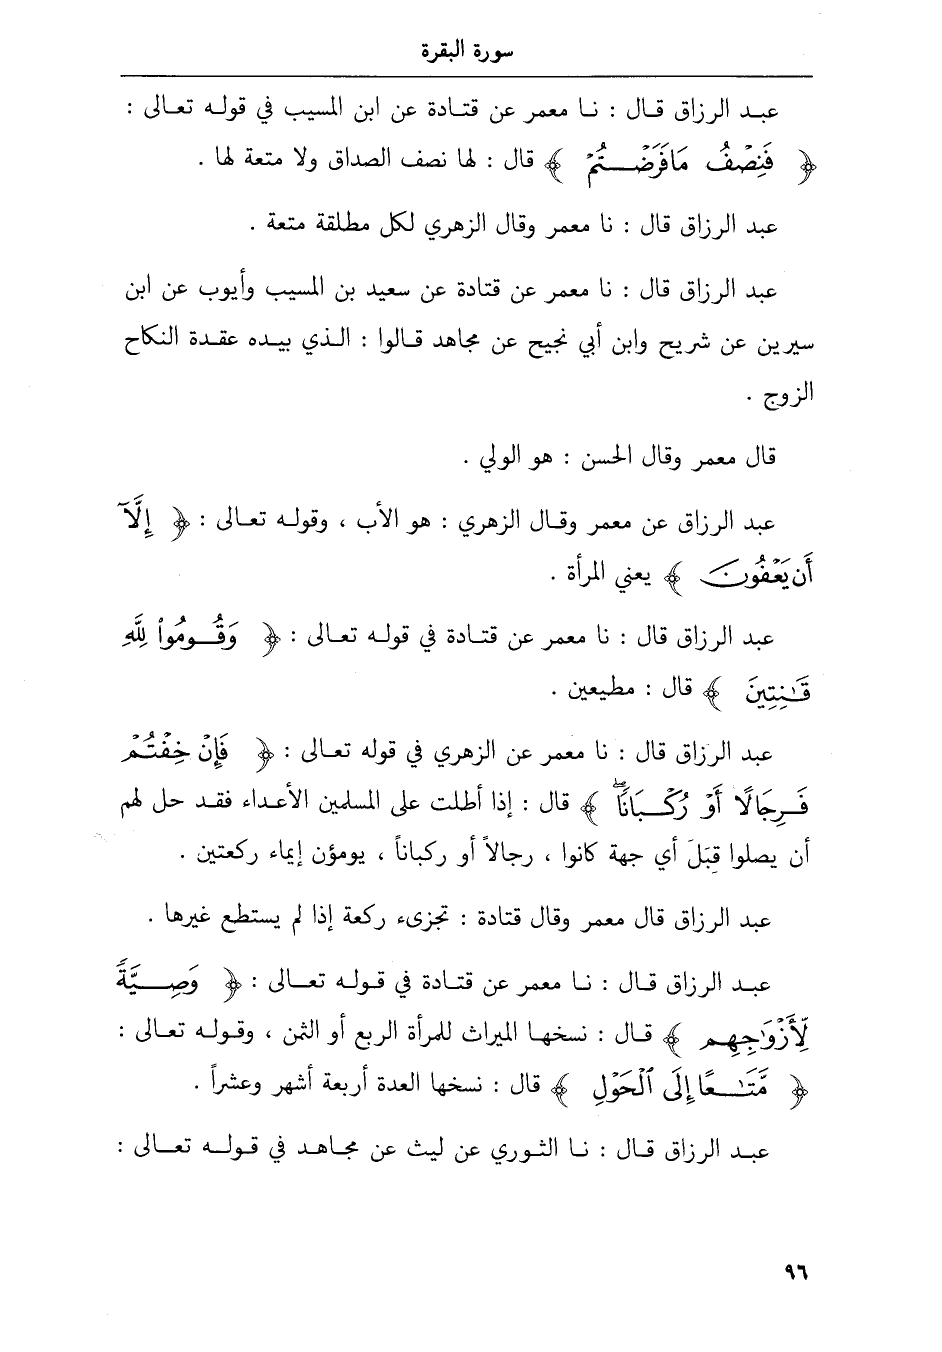 سورة البقرة
عبد الرزاق قال : نا معمر عن قتادة عن ابن المسيب في قوله تعالى :
﴿ فَنِصْفُ مَا فَرَضْتُمْ ﴾ قال : لها نصف الصداق ولا متعة لها .
عبد الرزاق قال : نا معمر وقال الزهري لكل مطلقة متعة .
عبد الرزاق قال : نا معمر عن قتادة عن سعيد بن المسيب وأيوب عن ابن
سيرين عن شريح وابن أبي نجيح عن مجاهد قالوا : الذي بيده عقدة النكاح
الزوج .
قال معمر وقال الحسن : هو الولي .
عبد الرزاق عن معمر وقال الزهري : هو الأب ، وقوله تعالى : ﴿ إِلَّآ
أَن يَعْفُونَ ﴾ يعني المرأة .
عبد الرزاق قال : نا معمر عن قتادة في قوله تعالى : ﴿ وَقُومُواْ لِلَّهِ
قَٰنِتِينَ ﴾ قال : مطيعين .
عبد الرزاق قال : نا معمر عن الزهري في قوله تعالى : ﴿ فَإِنْ خِفْتُمْ
فَرِجَالًا أَوْ رُكْبَانًا ۖ ﴾ قال : إذا أطلت على المسلمين الأعداء فقد حل لهم
أن يصلوا قِبَلَ أي جهة كانوا ، رجالاً أو ركباناً ، يومؤن إيماء ركعتين .
عبد الرزاق قال معمر وقال قتادة : تجزىء ركعة إذا لم يستطع غيرها .
عبد الرزاق قال : نا معمر عن قتادة في قوله تعالى : ﴿ وَصِيَّةً
لِّأَزْوَٰجِهِم ﴾ قال : نسخها الميراث للمرأة الربع أو الثمن ، وقوله تعالى :
﴿ مَّتَٰعًا إِلَى ٱلْحَوْلِ ﴾ قال : نسخها العدة أربعة أشهر وعشراً .
عبد الرزاق قال : نا الثوري عن ليث عن مجاهد في قوله تعالى :
٩٦